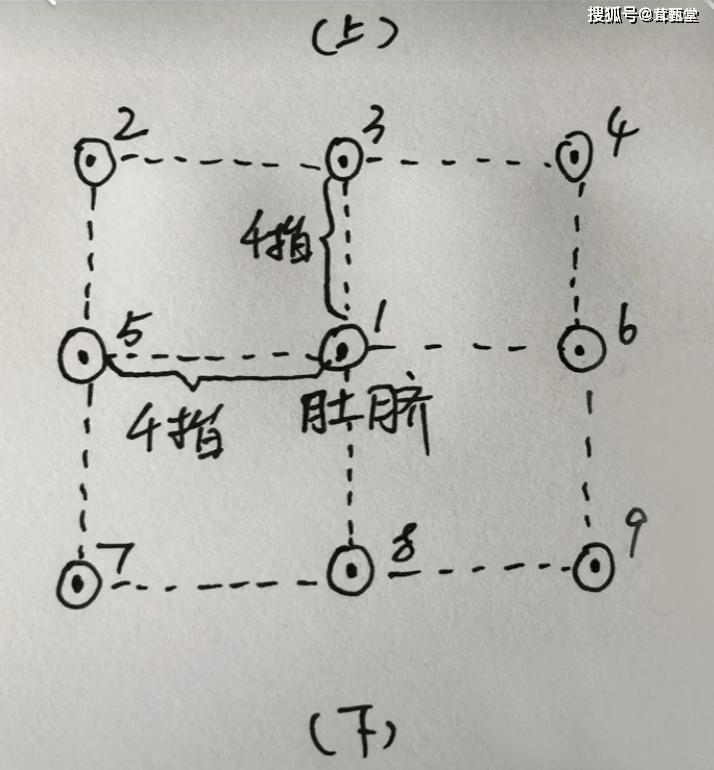 搜狐号@茸甄堂
(上)
2 3 4
4指
5 1 6
4指 肚脐
7 8 9
(下)